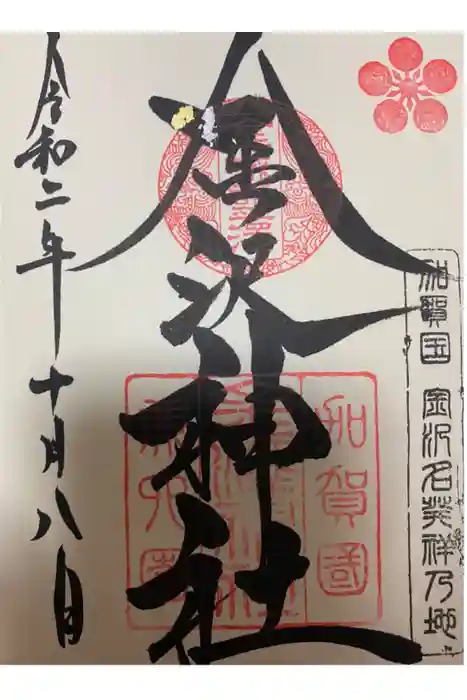 加賀国 金沢名発祥乃地
金沢神社
加賀國
令和二年十月八日